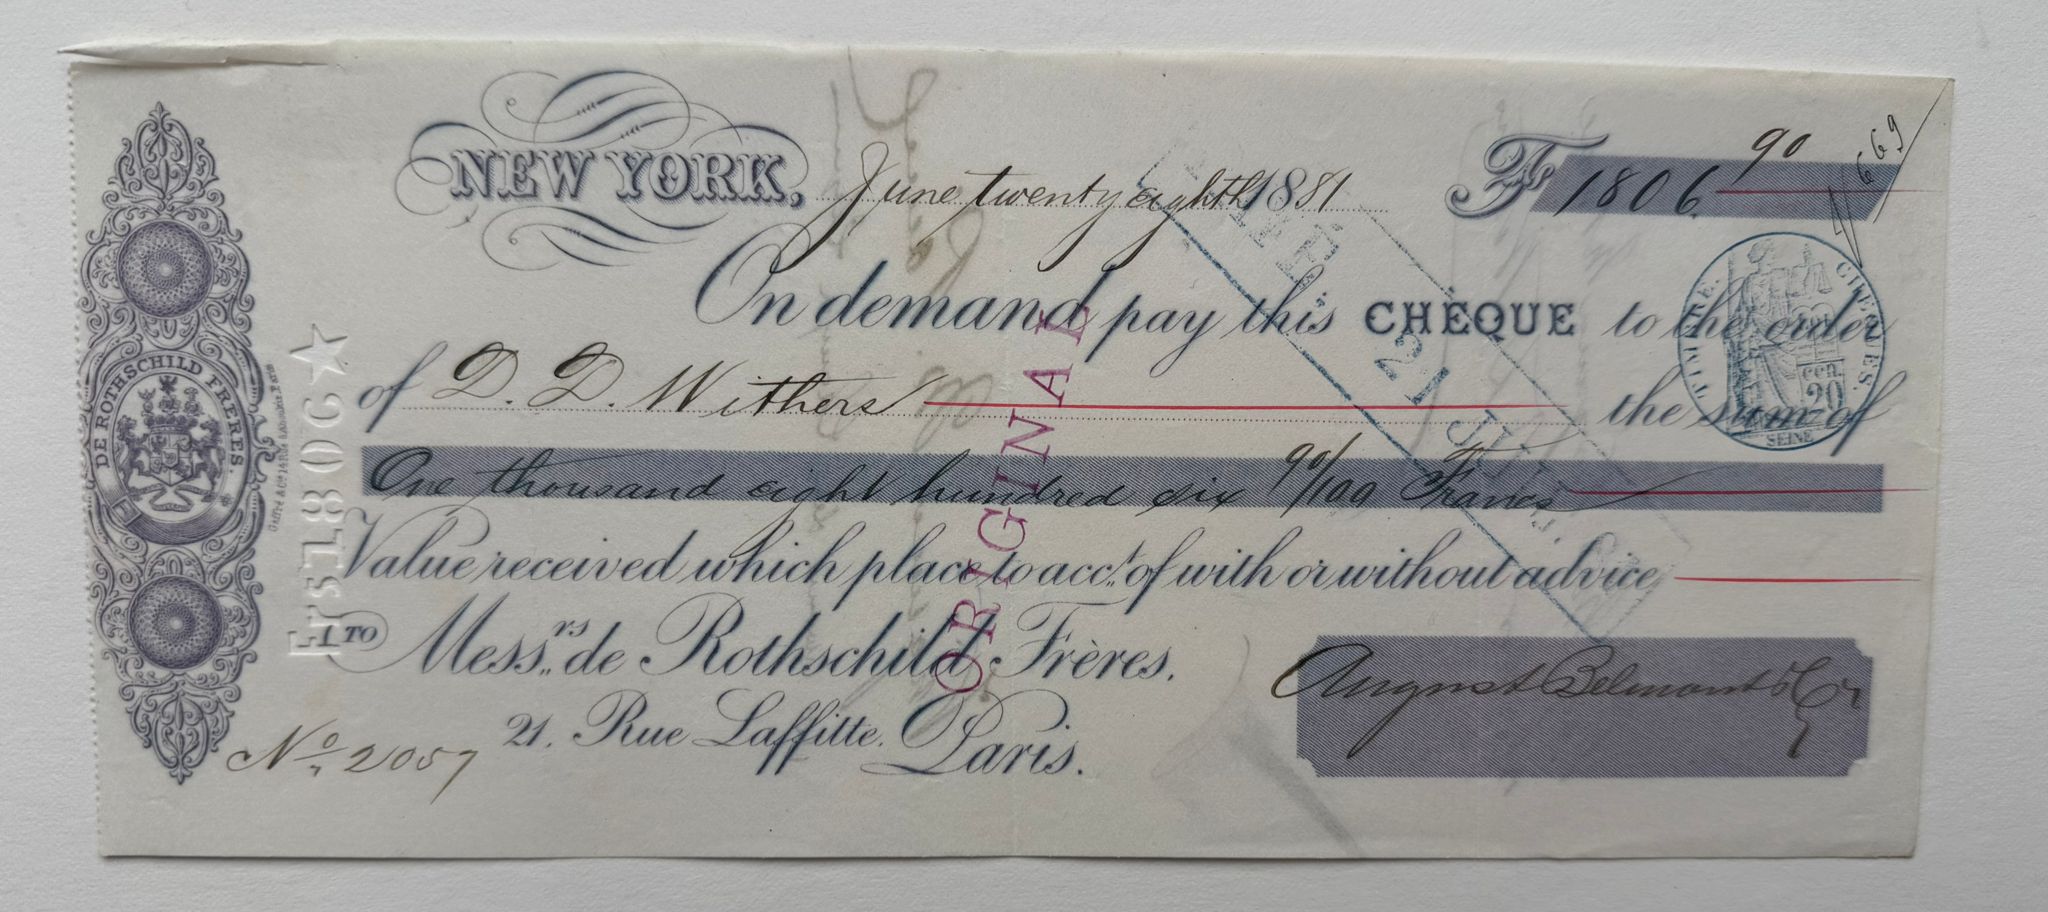 NEW YORK, June twenty eighth 1881
F 1806 90
669
On demand pay this CHÈQUE to the order
of D. D. Withers the sum of
One thousand eight hundred six 90/100 Francs
Value received which place to acct. of with or without advice
TO Messrs. de Rothschild Frères.
21. Rue Laffitte. Paris.
August Belmont & Co
No. 2057
DE ROTHSCHILD FRERES.
Frs 1806
ORIGINAL
TIMBRE. CHEQUES.
cen. 20
SEINE
21